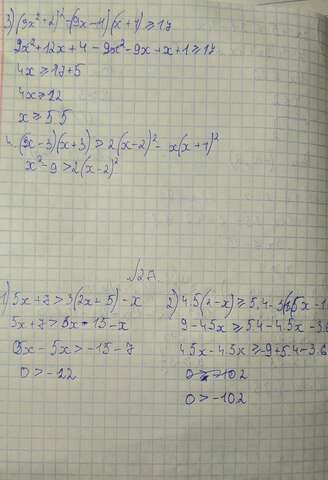 3) (3x²+2)²-(9x-1)(x+1)≥17
9x²+12x+4-9x²-9x+x+1≥17
4x≥17+5
4x≥22
x≥5 5
4. (x-3)(x+3)>2(x-2)²-x(x+1)²
x²-9>2(x-2)²
√27
1) 5x+7>3(2x+5)-x
5x+7>5x-15-x
5x-5x>-15-7
0>-22
2) 4.5(2-x)≥5.4-3(1.5x-1.
9-4.5x≥5.4-4.5x-3.6
4.5x-4.5x≥-9+5.4-3.6
0>-10.2
0>-10.2